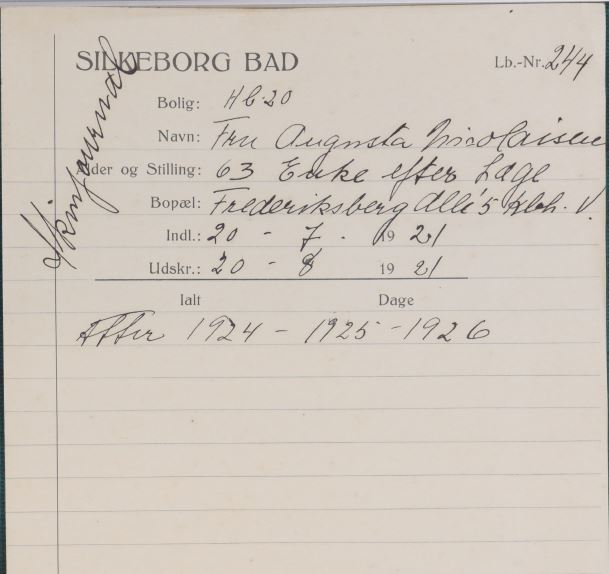 SILKEBORG BAD
Lb.-Nr. 244
Skinjournal
Bolig: Hb. 20
Navn: Fru Augusta Nicolaisen
Alder og Stilling: 63 Enke efter Læge
Bopæl: Frederiksberg Alle' 5 Kbh. V.
Indl.: 20 - 7. 19 21
Udskr.: 20 - 8 19 21
Ialt Dage
Atter 1924 - 1925 - 1926